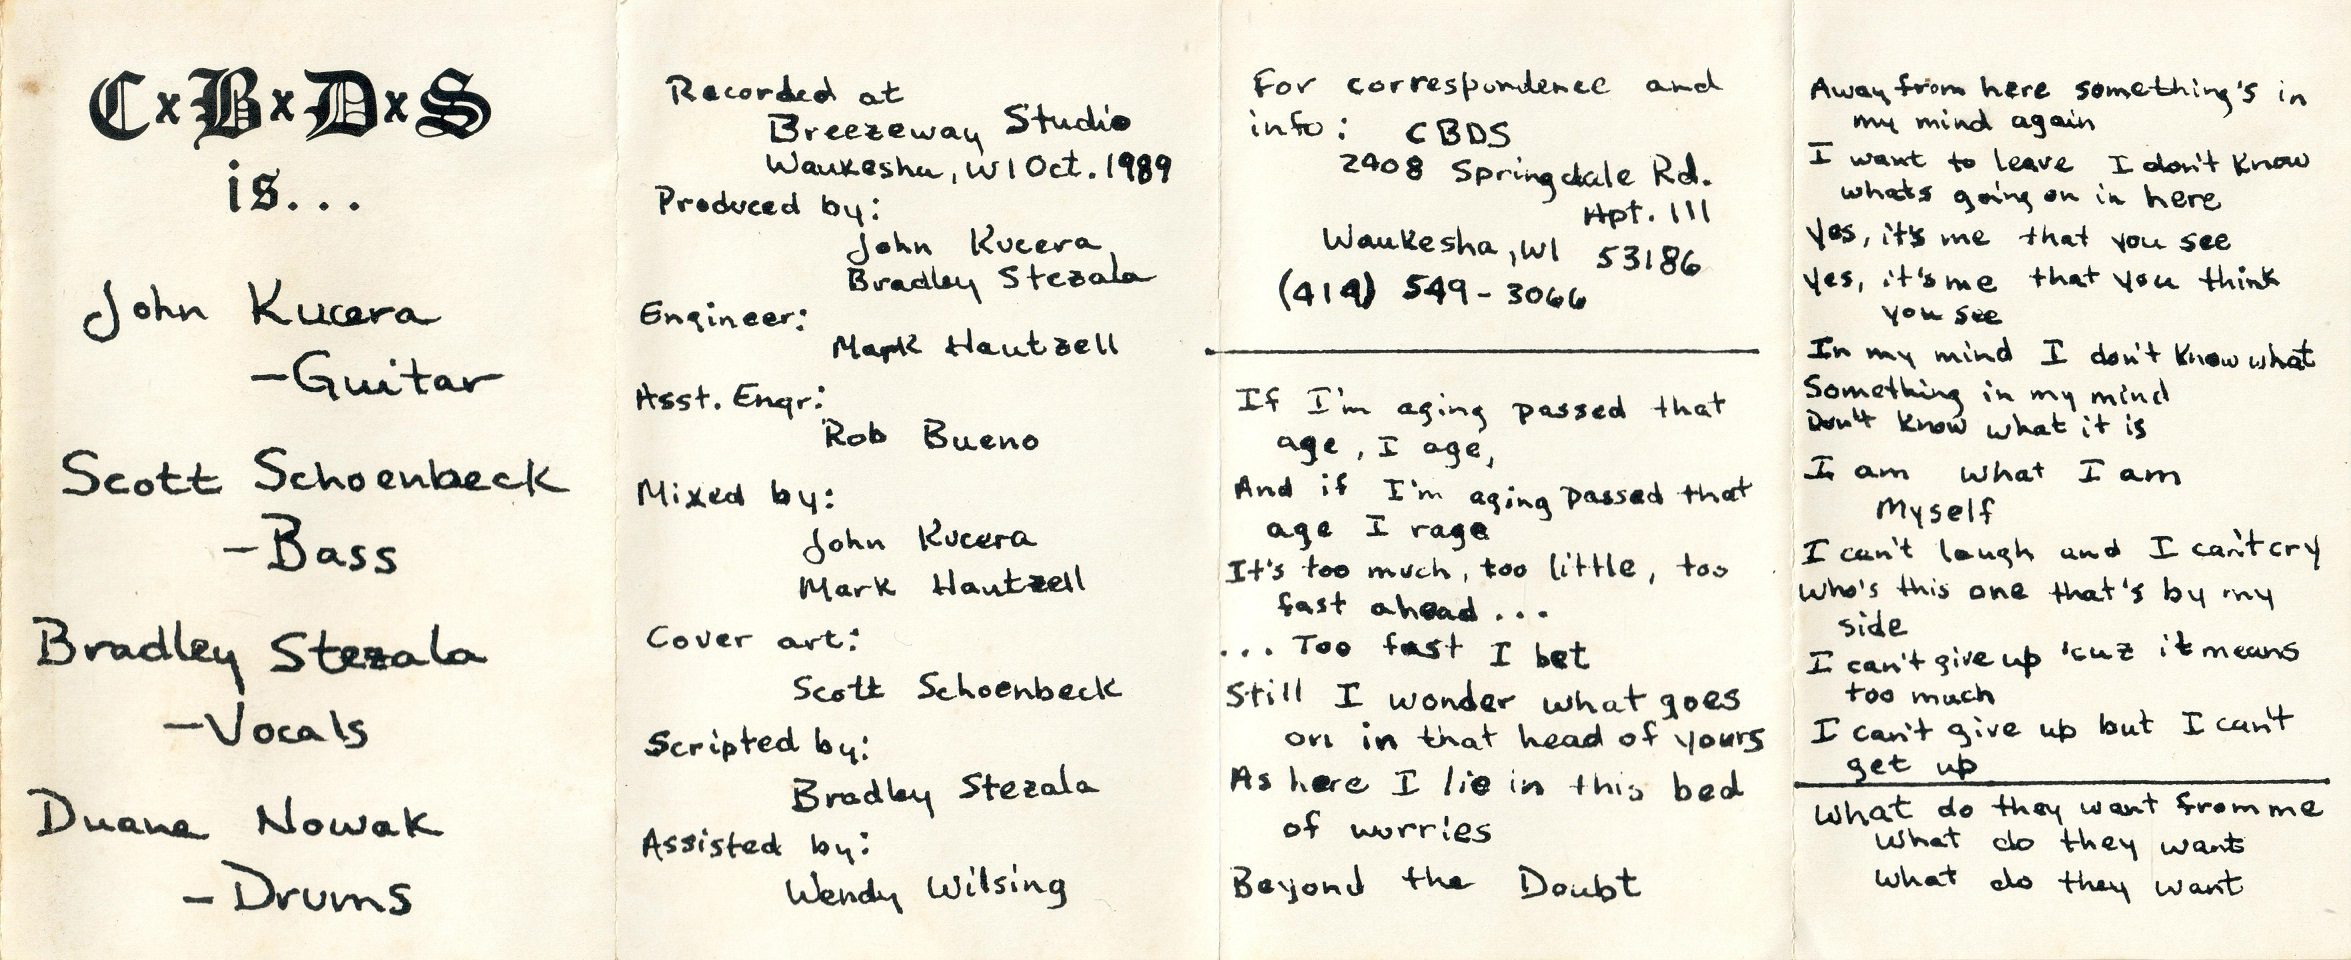 CxBxDxS
is...
John Kucera
-Guitar
Scott Schoenbeck
-Bass
Bradley Stezala
-Vocals
Duane Nowak
-Drums
Recorded at
Breezeway Studio
Waukesha, WI Oct. 1989
Produced by:
John Kucera
Bradley Stezala
Engineer:
Mark Hautzell
Asst. Engr:
Rob Bueno
Mixed by:
John Kucera
Mark Hautzell
Cover art:
Scott Schoenbeck
Scripted by:
Bradley Stezala
Assisted by:
Wendy Wilsing
For correspondence and
info: CBDS
2408 Springdale Rd.
Apt. 111
Waukesha, WI 53186
(414) 549-3066
If I'm aging passed that
age, I age,
And if I'm aging passed that
age I rage
It's too much, too little, too
fast ahead...
...Too fast I bet
Still I wonder what goes
on in that head of yours
As here I lie in this bed
of worries
Beyond the Doubt
Away from here something's in
my mind again
I want to leave I don't know
whats going on in here
Yes, it's me that you see
Yes, it's me that you think
you see
In my mind I don't know what
Something in my mind
Don't know what it is
I am what I am
Myself
I can't laugh and I can't cry
Who's this one that's by my
side
I can't give up 'cuz it means
too much
I can't give up but I can't
get up
What do they want from me
What do they want
What do they want